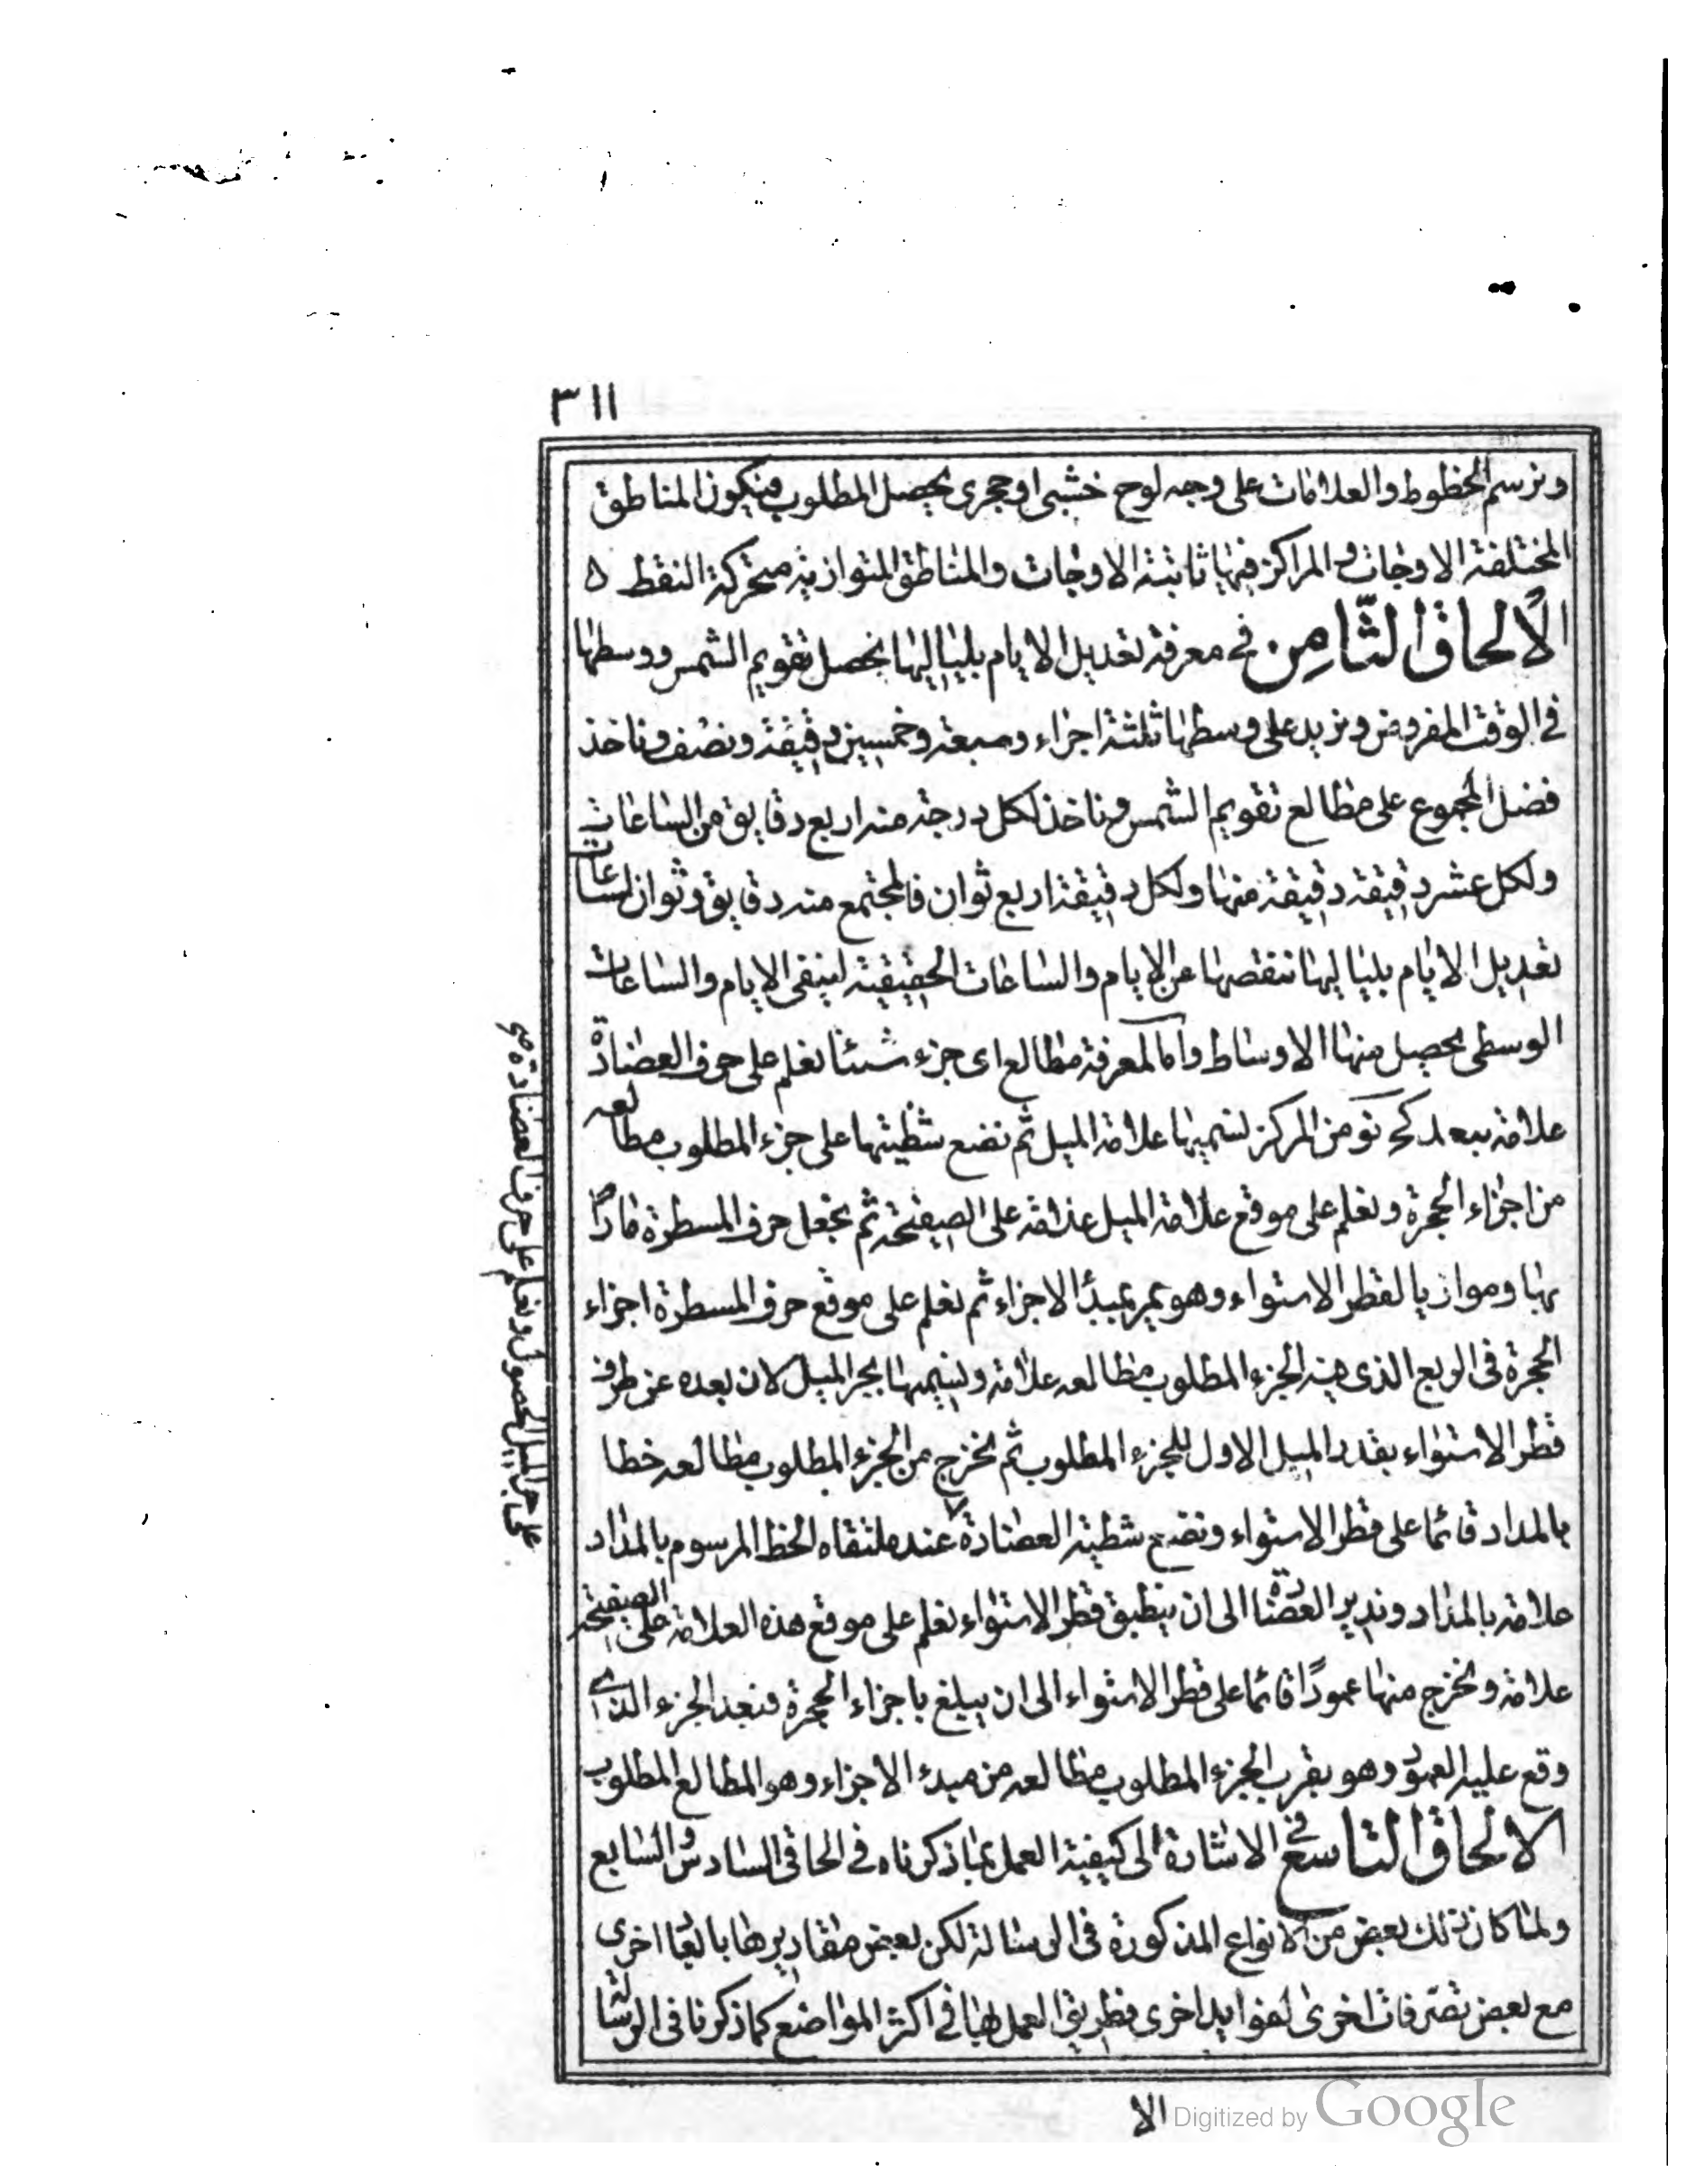 ٣١١
ونرسم الخطوط والعلامات على وجه لوح خشبى او حجرى يحصل المطلوب فيكون المناطق
المختلفة الاوجات والمراكز فيها ثابتة الاوجات والمناطق المتوازية متحركة النقط ٥
الالحاق الثامن في معرفة تعديل الايام بلياليها نحصل تقويم الشمس ووسطها
في الوقت المفروض ونزيد على وسطها ثلثة اجزاء وسبعة وخمسين دقيقة ونصف وناخذ
فضل المجموع على مطالع تقويم الشمس وناخذ لكل درجة منه اربع دقايق من الساعات
ولكل عشر دقيقة دقيقة منها ولكل دقيقة اربع ثوان فالمجتمع منه دقايق وثوان ساعات
تعديل الايام بلياليها ننقصها عن الايام والساعات الحقيقية ليبقى الايام والساعات
الوسطى يحصل منها الاوساط واما لمعرفة مطالع اى جزء شئنا نعلم على حرف العضادة
علامة ببعد كح نو من المركز نسميها علامة الميل ثم نضع شظيتها على جزء المطلوب مطالعه
من اجزاء الحجرة ونعلم على موقع علامة الميل علامة على الصفيحة ثم نجعل حرف المسطرة مارا
بها وموازيا لقطر الاستواء وهو يمر بمبدأ الاجزاء ثم نعلم على موقع حرف المسطرة اجزاء
الحجرة في الربع الذى فيه الجزء المطلوب مطالعه علامة ونسميها بجزء الميل لان بعده عن طرف
قطر الاستواء بقدر الميل الاول للجزء المطلوب ثم نخرج من الجزء المطلوب مطالعه خطا
بالمداد قائما على قطر الاستواء ونضع شظية العضادة ٧ عند ملتقاه الخط المرسوم بالمداد
علامة بالمداد وندير العضادة الى ان ينطبق قطر الاستواء نعلم على موقع هذه العلامة على الصفيحة
علامة ونخرج منها عمودًا قائما على قطر الاستواء الى ان يبلغ باجزاء الحجرة فبعد الجزء الذى
وقع عليه العمود وهو بقرب الجزء المطلوب مطالعه من مبدء الاجزاء وهو المطالع المطلوب
الالحاق التاسع في الاشارة الى كيفية العمل بما ذكرناه في الحاقى السادس والسابع
ولما كان تلك بعض من الانواع المذكورة في الرسالة لكن بعض مقاديرها بابعاد اخرى
مع بعض تصرفات اخرى لفوايد اخرى فطريق العمل بها في اكثر المواضع كما ذكرنا في الرسالة
الا
على جزء الميل الحصول ونعلم على حرف العضادة
Digitized by Google